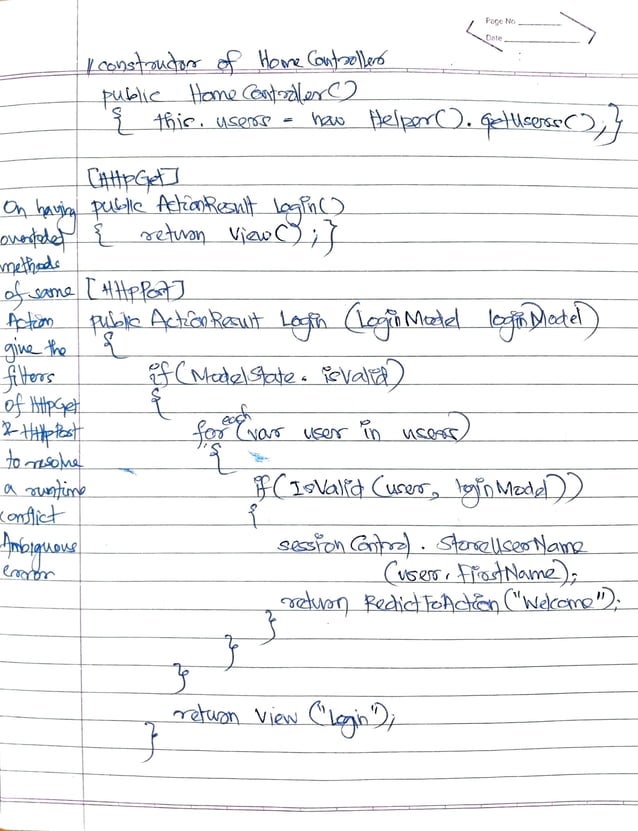 Page No.
Date
// constructor of HomeControllers
public HomeController()
{ this.users = new Helper().GetUsers();}
[HttpGet]
public ActionResult Login()
{ return View();}
On having
overloded
methods
of same
Action
give the
filters
of HttpGet
& HttpPost
to resolve
a runtime
conflict
Ambiguous
error
[HttpPost]
public ActionResult Login (LoginModel loginModel)
{
if(ModelState.isValid)
{
foreach(var user in users)
{
if(IsValid(user, loginModel))
{
sessionControl.StoreUserName
(user.FirstName);
return RedictToAction("Welcome");
}
}
}
return View("Login");
}